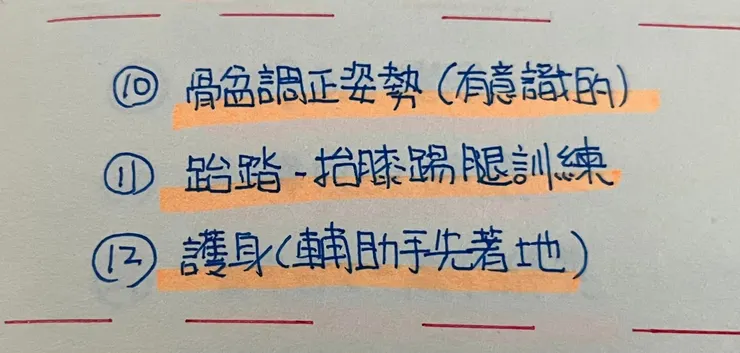 ⑩ 骨盆調正姿勢(有意識的)
⑪ 跆踏-抬膝踢腿訓練
⑫ 護身(輔助手先著地)